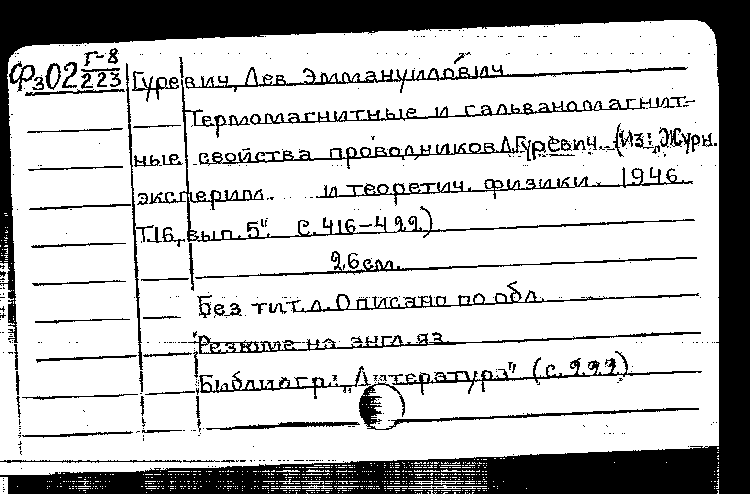 Фз02 Г-8/223 Гуревич, Лев Эммануилович
Термомагнитные и гальваномагнит-
ные свойства проводников Л.Гуревич. (Из: „Журн.
эксперим. и теоретич. физики. 1946.
Т.16, вып. 5". С. 416-422)
26 см.
Без тит.л. Описано по обл.
Резюме на англ. яз.
Библиогр: „Литература" (с. 222)